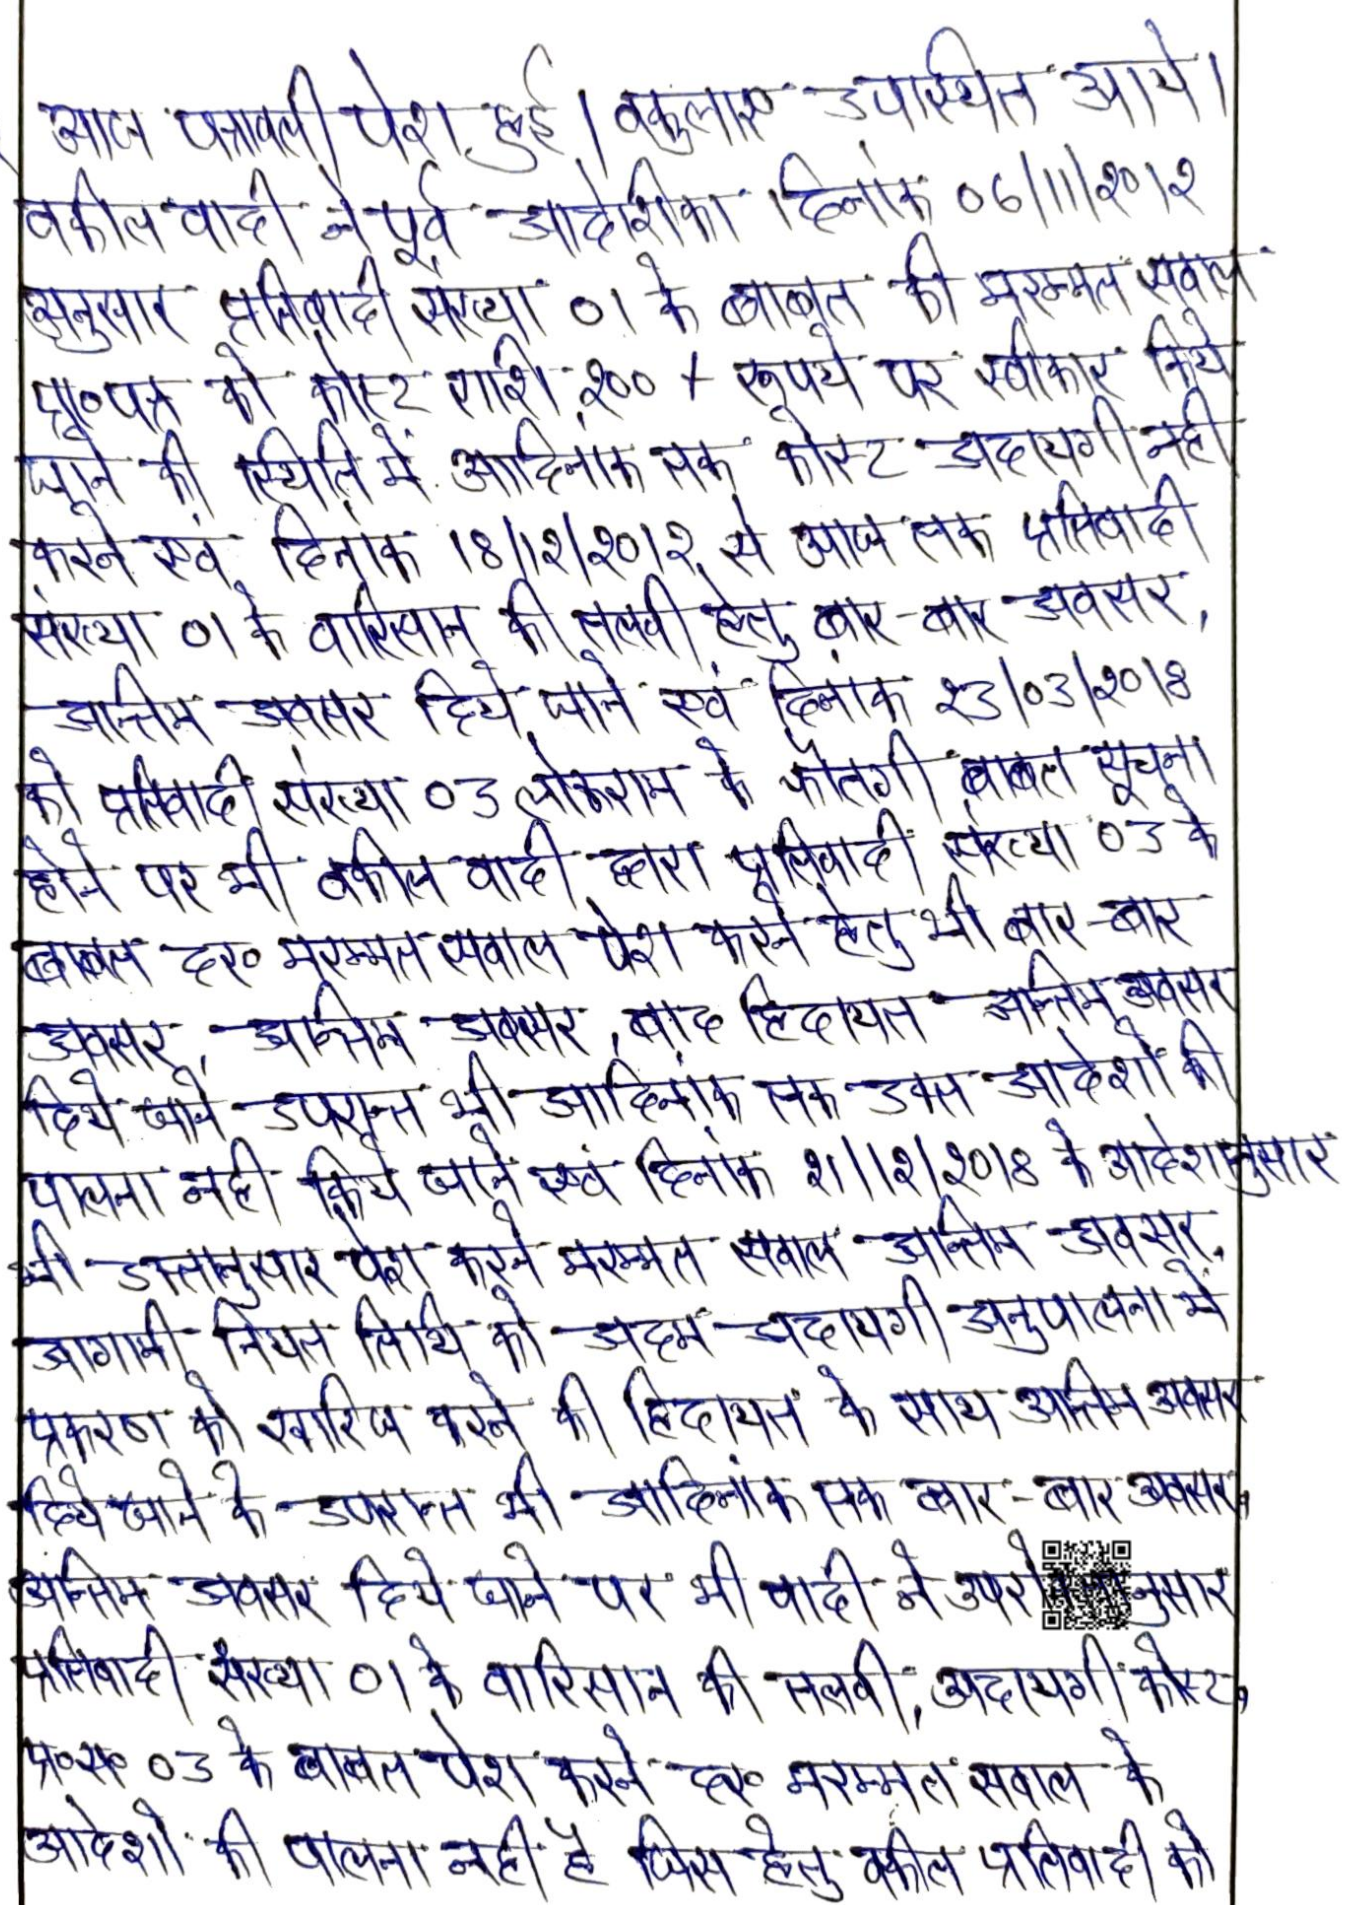 आज पत्रावली पेश हुई। वकुलाए उपस्थित आये।
वकील वादी ने पूर्व आदेशिका दिनांक 06/11/2012
अनुसार प्रतिवादी संख्या 01 के बाबत की मरम्मत सवाल
प्रा०पत्र को कोस्ट राशि 200/- रूपये पर स्वीकार किये
जाने की स्थिति में आदिनांक तक कोस्ट अदायगी नही
करने एवं दिनांक 18/12/2012 से आज तक प्रतिवादी
संख्या 01 के वारिसान की तलवी हेतु बार-बार अवसर,
अन्तिम अवसर दिये जाने एवं दिनांक 23/03/2018
को प्रतिवादी संख्या 03 के फौतगी बाबत सूचना
होने पर भी वकील वादी द्वारा प्रतिवादी संख्या 03 के
बाबत दर० मरम्मत सवाल पेश करने हेतु भी बार-बार
अवसर, अन्तिम अवसर, बाद हिदायत अन्तिम अवसर
दिये जाने उपरान्त भी आदिनांक तक उक्त आदेशो की
पालना नही किये जाने एवं दिनांक 21/12/2018 के आदेशानुसार
भी उक्तानुसार पेश करने मरम्मत सवाल अन्तिम अवसर,
आगामी नियत तिथि को अदम अदायगी अनुपालना में
प्रकरण को खारिज करने की हिदायत के साथ अन्तिम अवसर
दिये जाने के उपरान्त भी आदिनांक तक बार-बार अवसर,
अन्तिम अवसर दिये जाने पर भी वादी ने
प्रतिवादी संख्या 01 के वारिसान की तलवी, अदायगी कोस्ट,
प्र०स० 03 के बाबत पेश करने दर० मरम्मत सवाल के
आदेशो की पालना नही है जिस हेतु वकील प्रतिवादी को